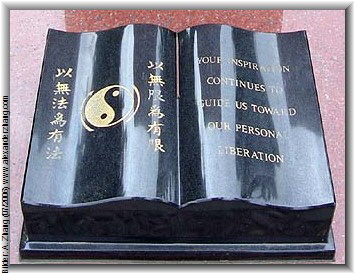 以無法為有法
以無限為有限
YOUR INSPIRATION
CONTINUES TO
GUIDE US TOWARD
OUR PERSONAL
LIBERATION
Bilder: A. Zhang www.alexanderzhang.com